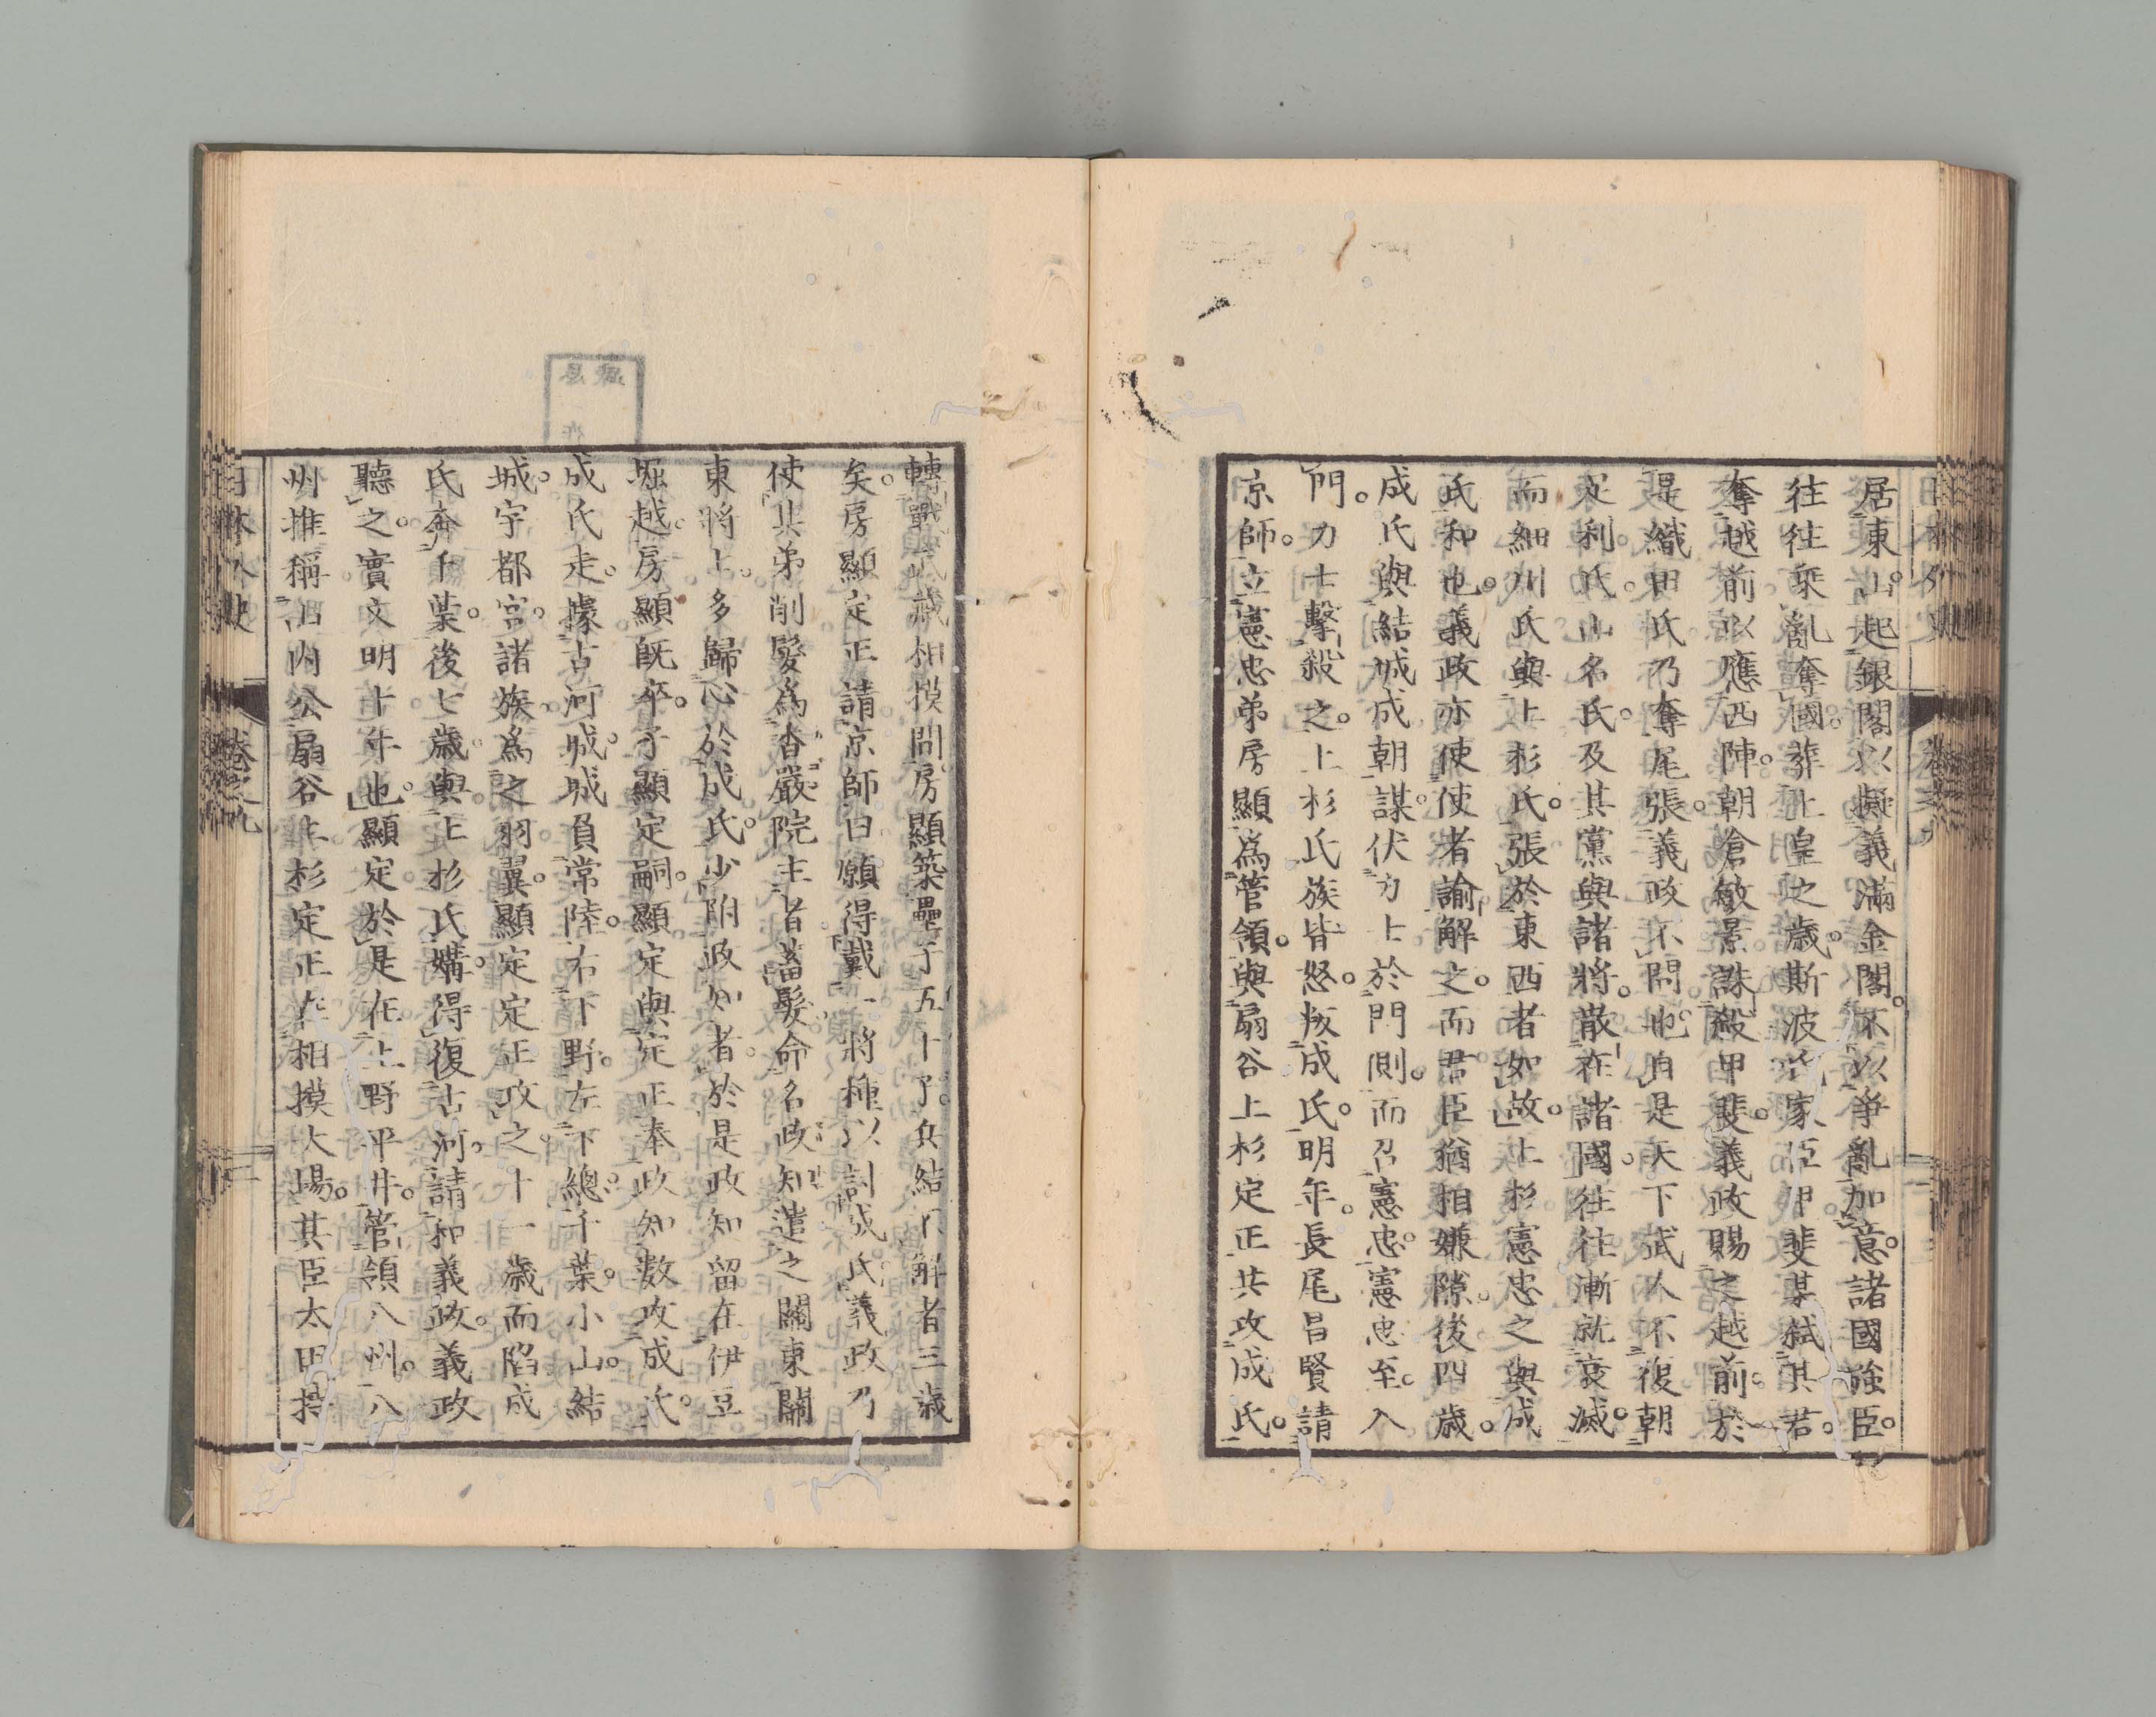 居東山。起銀閣以擬義滿金閣。不以爭亂加意。諸國強臣。
往往乘亂奪國。葬上皇之歲。斯波氏家臣甲斐某弑其君。
奪越前以應西陣。朝倉敏景誅殺甲斐。義政賜之越前。於
是織田氏乃奪尾張。義政不問也。自是天下武人不復朝
足利氏。山名氏。及其黨與諸將。散在諸國。往往漸就衰滅。
而細川氏與上杉氏。張於東西者如故。上杉憲忠之與成
氏和也。義政亦使使者諭解之。而君臣猶相嫌隙。後四歲。
成氏與結城成朝謀。伏力士於門側。而召憲忠。憲忠至。入
門。力士擊殺之。上杉氏族皆怒。叛成氏。明年。長尾昌賢請
京師。立憲忠弟房顯爲管領。與扇谷上杉定正共攻成氏。
轉戰武藏相摸間。房顯築壘于五十子。兵結不解者三歲
矣。房顯定正請京師曰願得戴一將種以討成氏。義政乃
使其弟削髮爲香嚴院主者蓄髮命名政知遣之關東關
東將士。多歸心於成氏。少附政知者。於是政知留在伊豆
堀越。房顯旣卒。子顯定嗣。顯定與定正奉政知數攻成氏。
成氏走。據古河城。城負常陸。右下野。左下總。千葉。小山。結
城。宇都宮。諸族。爲之羽翼。顯定定正攻之。十一歲而陷成
氏奔千葉。後七歲。與上杉氏媾。得復古河。請和義政。義政
聽之。實文明十年也。顯定於是在上野平井。管領八州。八
州推稱山內公扇谷上杉定正在相摸大場。其臣太田持
日本外史 卷之九